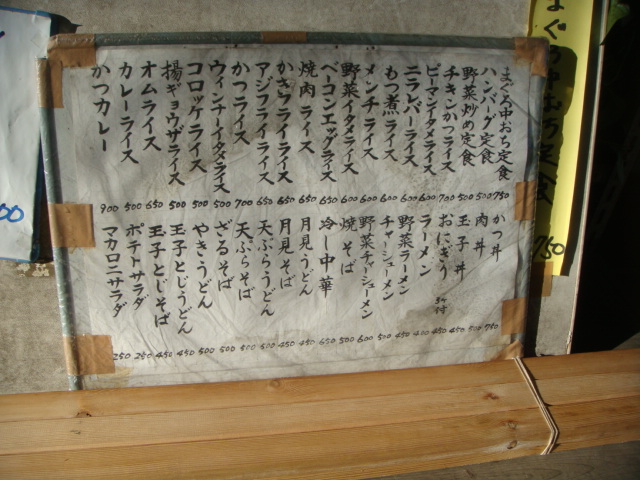 まぐろ中おち定食 750
まぐろ中おち定食 750
ハンバーグ定食 500
野菜炒め定食 500
チキンかつライス 700
ピーマンイタメライス 600
ニラレバーライス 600
もつ煮ライス 600
メンチライス 600
野菜イタメライス 600
ベーコンエッグライス 650
焼肉ライス 650
かきフライライス 650
アジフライライス 650
かつライス 700
ウィンナーイタメライス 500
コロッケライス 500
揚ギョウザライス 500
オムライス 650
カレーライス 500
かつカレー 900
かつ丼 750
肉丼 500
玉子丼 450
おにぎり 3ヶ付
ラーメン 400
野菜ラーメン 500
チャーシューメン
野菜チャーシューメン 600
焼そば 500
冷し中華 650
月見うどん 450
月見そば 450
天ぷらうどん 500
天ぷらそば 500
ざるそば 500
やきうどん 500
玉子とじうどん 450
玉子とじそば 450
ポテトサラダ 250
マカロニサラダ 250